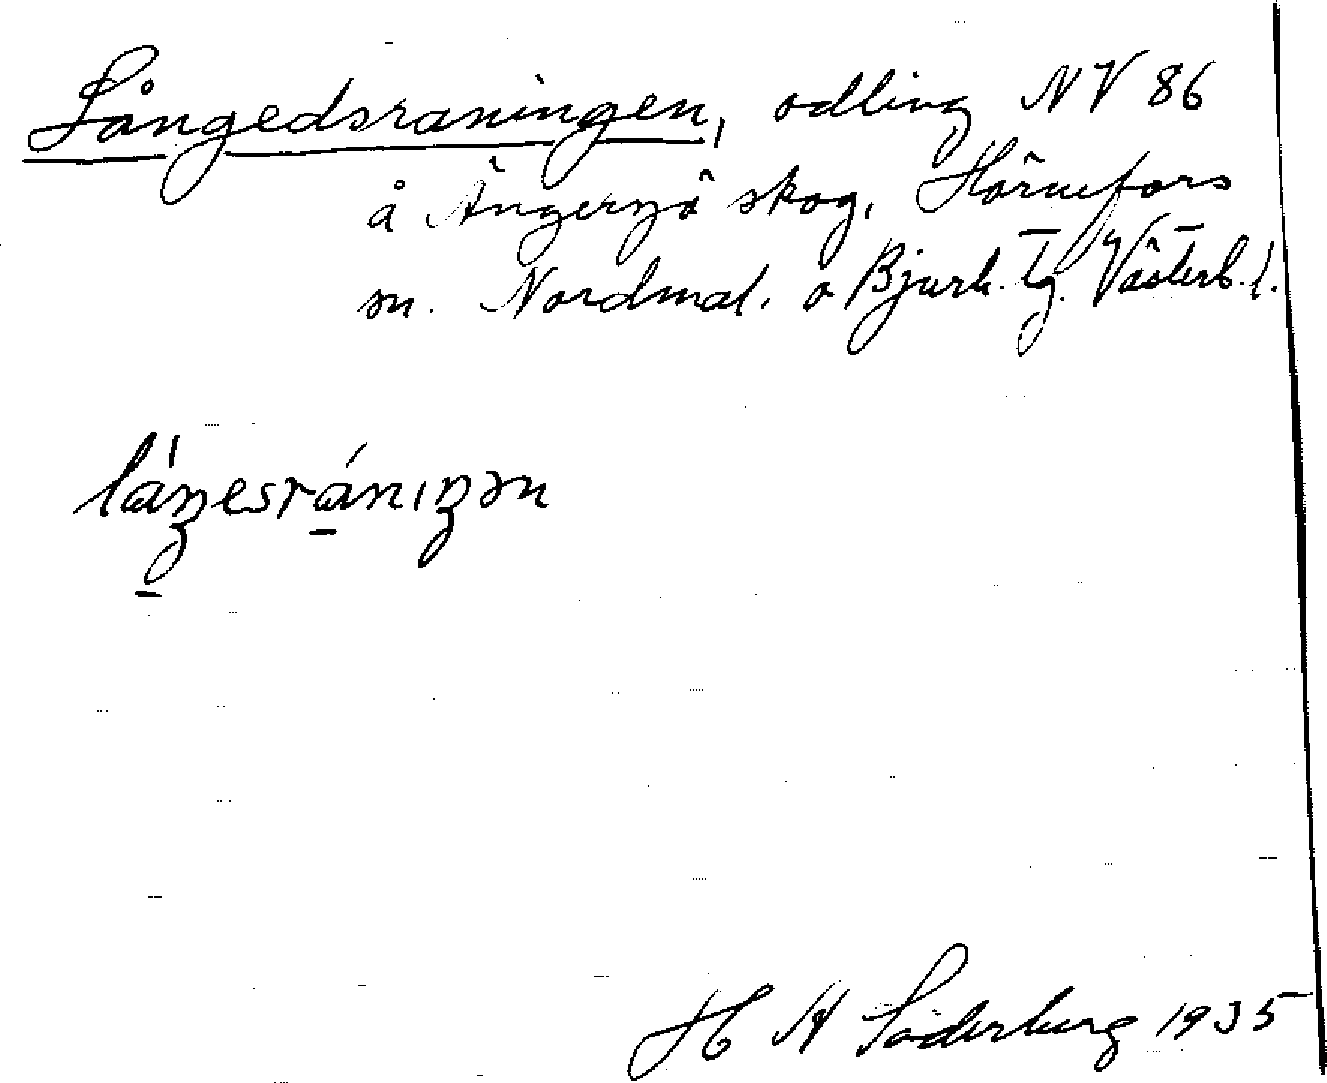 Långedsraningen, odling NV 86
å Ängersjö skog, Hörnefors
sn. Nordmal. o Bjurh. Tg. Västerb. l.
lǻŋesrániŋən
H A Söderberg 1935